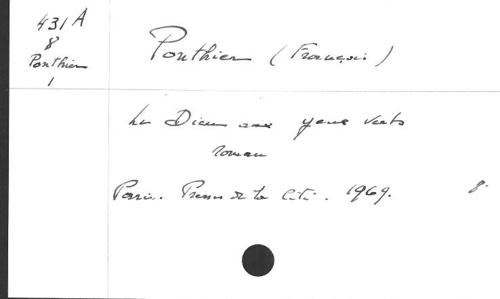 431 A
8
Ponthier
1
Ponthier (François)
Les Dieux aux yeux verts
roman
Paris. Presses de la Cité. 1969.
8°